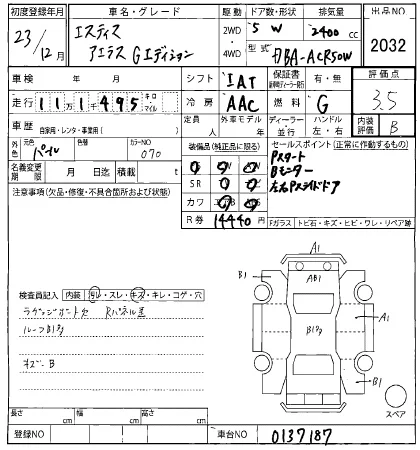 初度登録年月 車名・グレード 駆動 ドア数・形状 排気量 出品NO
23/12月 エスティマ 2WD・4WD 5 W 2400cc 2032
アエラス Gエディション 型式 DBA-ACR50W
車検 年 月 シフト IAT 保証書 有・無 評価点
走行 111千495 キロ・マイル 冷房 AAC 燃料 G 3.5
車歴 自家用・レンタ・事業用( ) 定員 人 外車モデル ディーラー・並行 ハンドル 左・右 内装評価 B
外色 元色 パール 色替 カラーNO 070 装備品(純正品に限る) セールスポイント(正常に作動するもの)
名義変更期限 月 日迄 積載 t
Pスタート
Bモニター
左右Pスライドドア
SR
カワ
R券 14440円
注意事項(欠品・修復・不具合箇所および状態)
Fガラス トビ石・キズ・ヒビ・ワレ・リペア跡
A1
B1
AB1
A1
B1
検査員記入 内装 汚レ・スレ・キズ・キレ・コゲ・穴
スペア
長さ cm 幅 cm 高さ cm
登録NO 車台NO 0137187